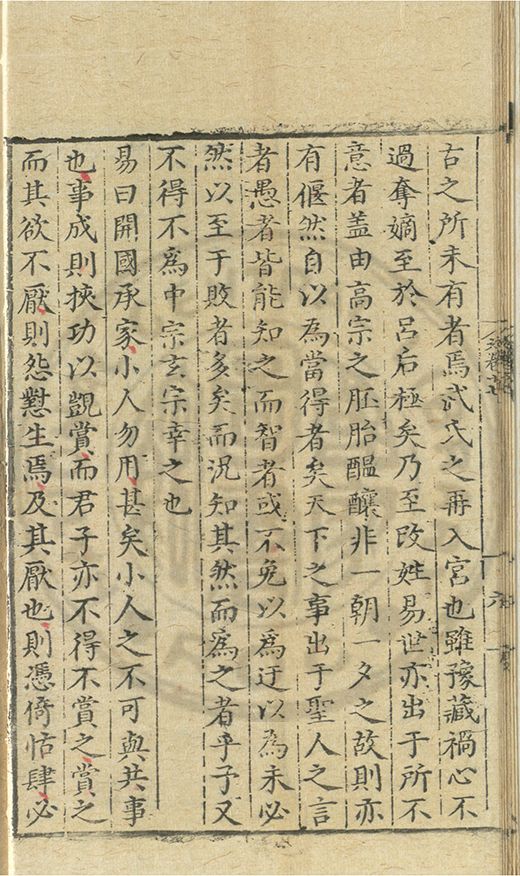 古之所未有者焉武氏之再入宮也雖豫藏禍心不
過奪嫡至於呂后極矣乃至改姓易世亦出于所不
意者盖由高宗之胚胎醞釀非一朝一夕之故則亦
有偃然自以為當得者矣天下之事出于聖人之言
者愚者皆能知之而智者或不免以為迂以為未必
然以至于敗者多矣而況知其然而為之者乎子又
不得不為中宗玄宗幸之也
易曰開國承家小人勿用甚矣小人之不可與共事
也事成則挾功以覬賞而君子亦不得不賞之賞之
而其欲不厭則怨懟生焉及其厭也則憑倚怙肆必